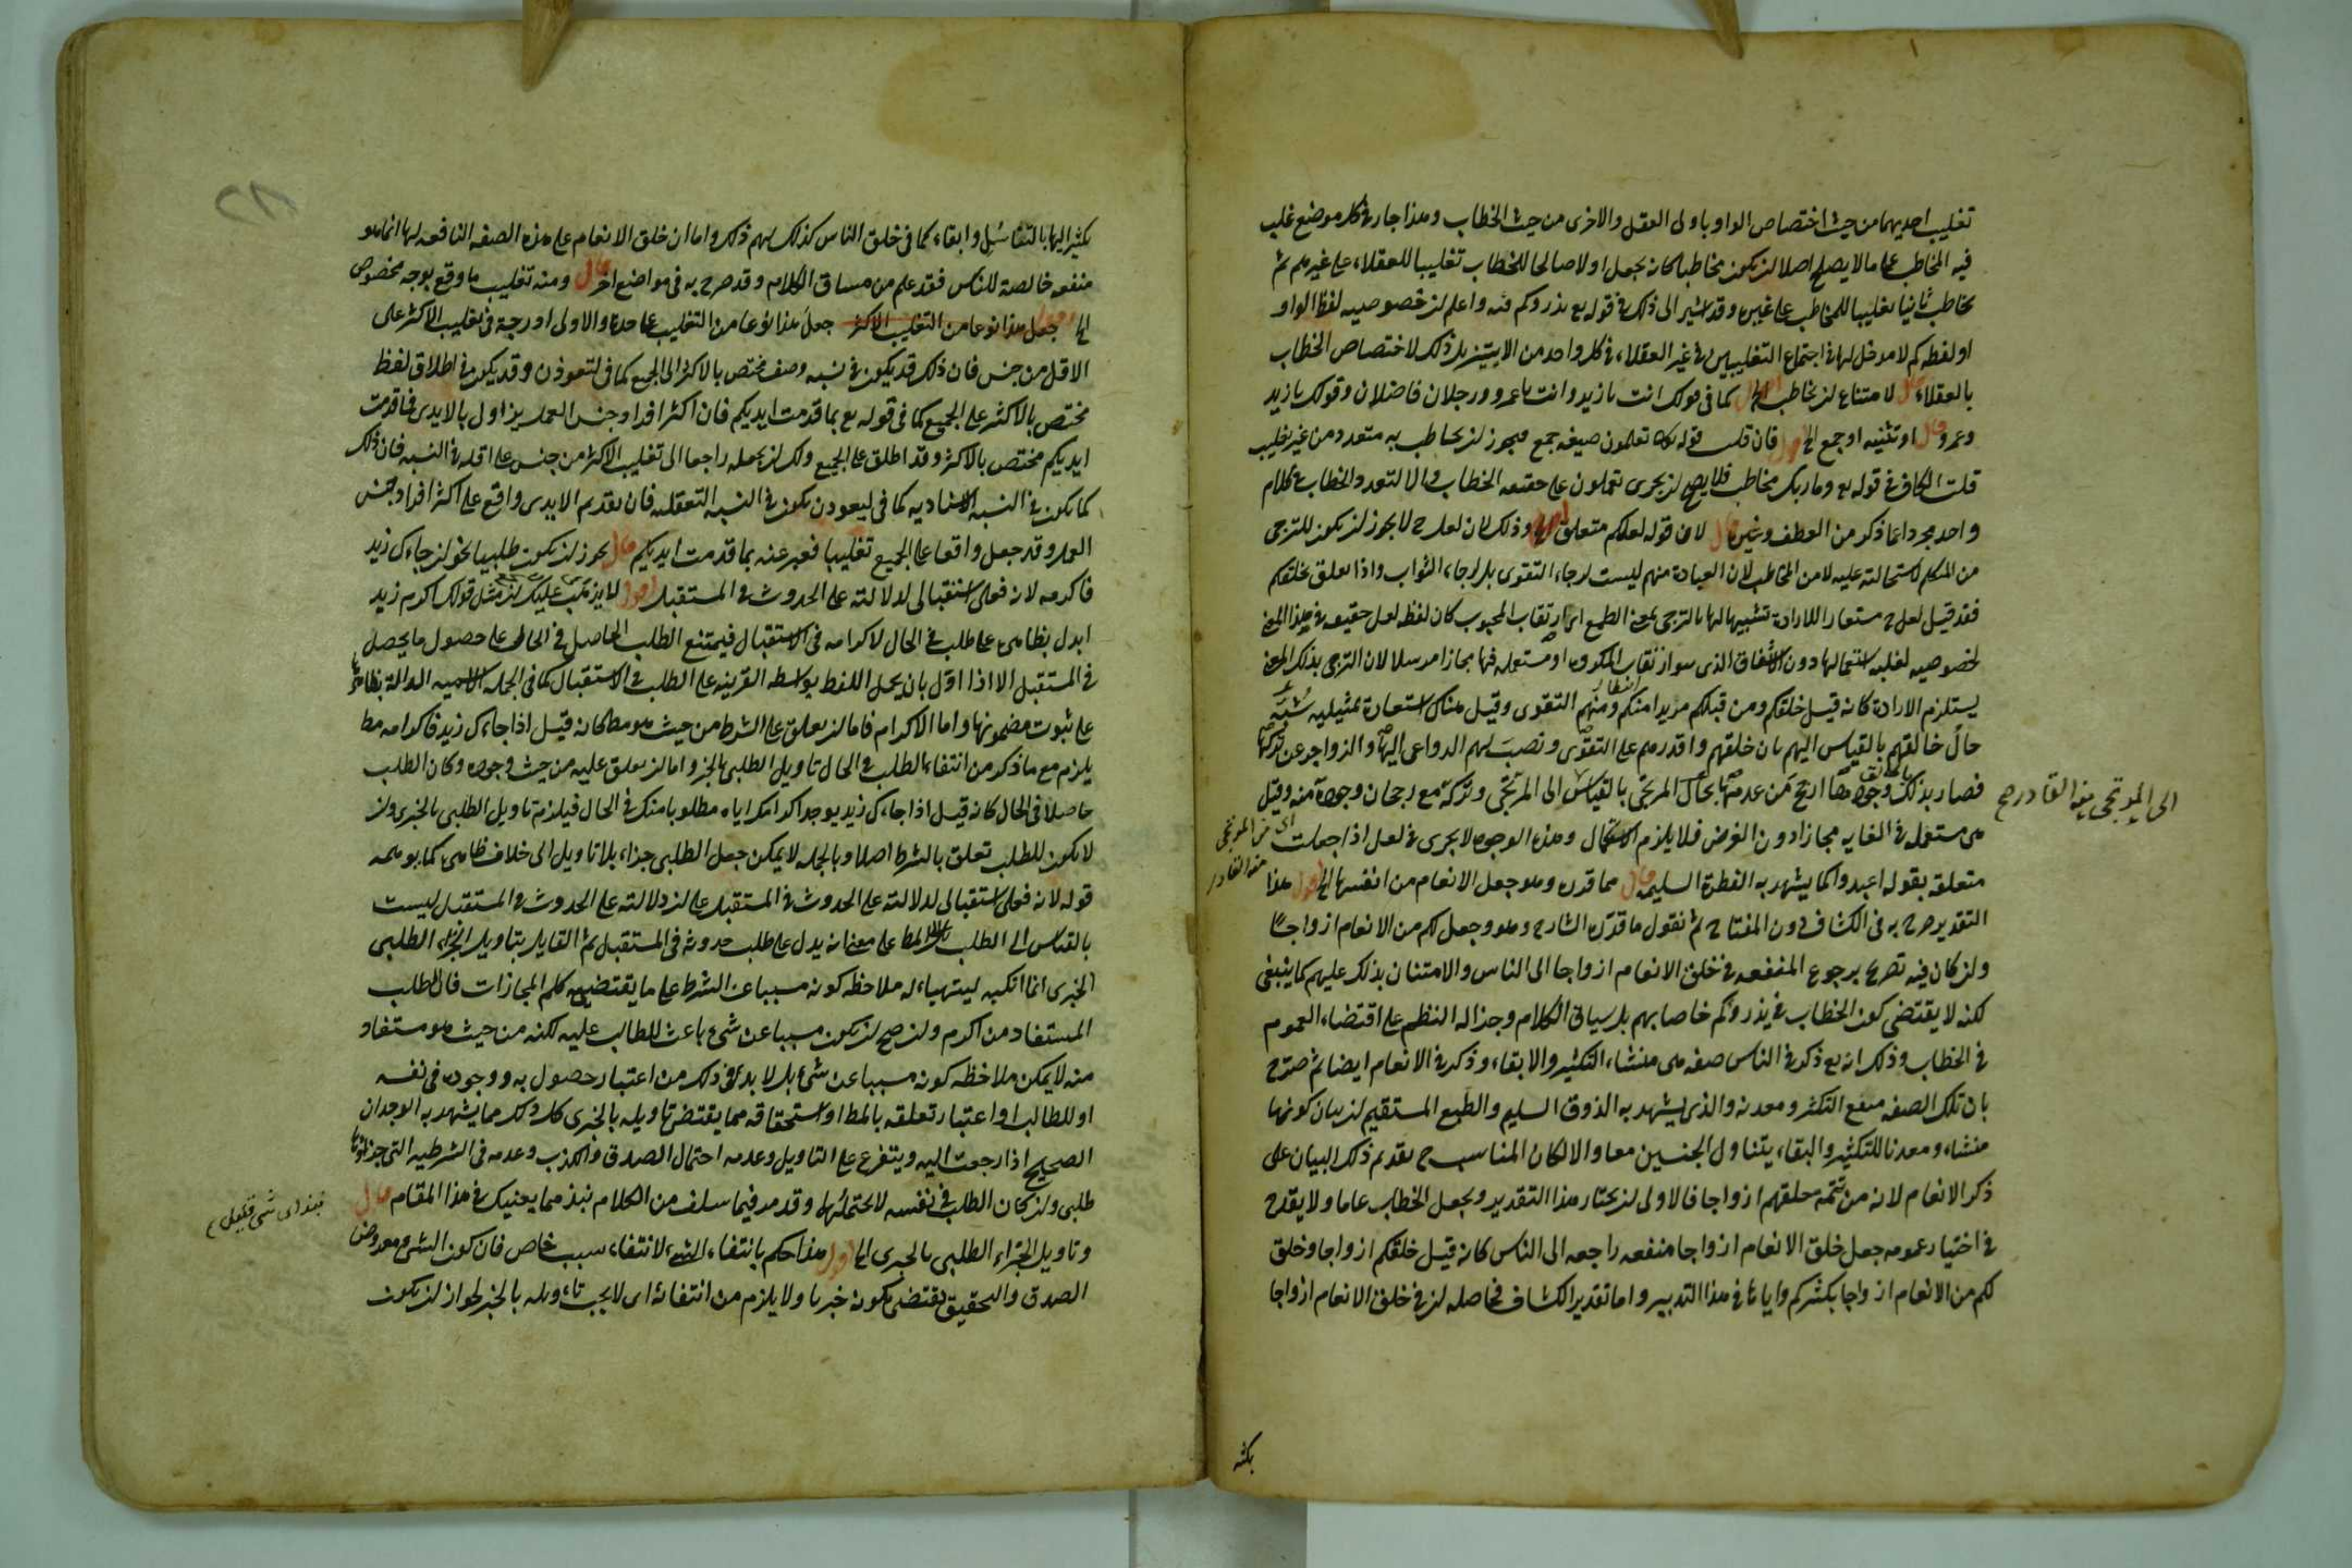 تغليب احديهما من حيث اختصاص الواو باولى العقل والاخرى من حيث الخطاب وهذا جار فى كل موضع غلب
فيه المخاطب على ما لا يصلح اصلا لان يكون مخاطبا كانه يجعل اولا صالحا للخطاب تغليبا للعقلاء على غيرهم ثم
يخاطب ثانيا تغليبا للمخاطب على غيره وقد اشير الى ذلك فى قوله تع يذرؤكم فيه واعلم ان خصوصيه لفظ الواو
او لفظه كم لا مدخل لها فى اجتماع التغليبين فى غير العقلاء فى كل واحد من الايتين بل ذلك لاختصاص الخطاب
بالعقلاء قال لامتناع ان يخاطب الخ اقول كما فى قولك انت يا زيد وانت يا عمرو ورجلان فاضلان وقولك يا زيد
وعمرو قال او تثنيه او جمع الخ اقول فان قلت قوله تعا تعلمون صيغه جمع فيجوز ان يخاطب به متعدد من غير تغليب
قلت الكاف فى قوله تع وما ربك مخاطب فلا يصح ان يجرى تعملون على حقيقه الخطاب والا لتعدد الخطاب فى كلام
واحد مجردا عما ذكر من العطف وغيره قال لان قوله لعلكم متعلق الخ اقول وذلك لان لعل ح لا يجوز ان يكون للترجى
من المتكلم لاستحالته عليه لا من المخاطب لان العبادة منهم ليست لرجاء التقوى بل لرجاء الثواب واذا تعلق بخلقكم
فقد قيل لعل ح مستعار للارادة تشبيها لها بالترجى بمعنى الطمع اى ارتقاب المحبوب كان لفظ لعل حقيقه فى هذا المعنى
لخصوصيه لغلبه استعمالها دون الاشفاق الذى هو ارتقاب المكروه او مستعمله فيها مجازا مرسلا لان الترجى بذلك المعنى
يستلزم الارادة كانه قيل خلقكم ومن قبلكم مريدا منكم ومنهم التقوى وقيل هناك استعارة تمثيليه شبه
حال خالقهم بالقياس اليهم بان خلقهم واقدرهم على التقوى ونصب لهم الدواعى اليها والزواجر عن تركها
فصار بذلك وجودها ارجح من عدمها بحال المرتجى بالقياس الى المرتجى وتركه مع رجحان وجوده منه وقيل
هى مستعمله فى الغايه مجازا دون الغرض فلا يلزم الاستكمال وهذه الوجوه لا يجرى فى لعل اذا جعلت
متعلقه بقوله اعبدوا كما يشهد به الفطرة السليمه قال مما قدره وهو جعل الانعام من انفسها الخ اقول هذا
التقدير صرح به فى الكشاف دون المفتاح ثم نقول ما قدره الشارح وهو وجعل لكم من الانعام ازواجا
وان كان فيه تصريح برجوع المنفعه فى خلق الانعام ازواجا الى الناس والامتنان بذلك عليهم كما ينبغى
لكنه لا يقتضى كون الخطاب فى يذروكم خاصا بهم بل سياق الكلام وجزاله النظم على اقتضاء العموم
فى الخطاب وذلك انه تع ذكر فى الناس صفه هى منشاء التكثير والابقاء وذكر فى الانعام ايضا ثم صرح
بان تلك الصفه منبع التكثر ومعدنه والذى يشهد به الذوق السليم والطبع المستقيم ان بيان كونها
منشاء ومعدنا للتكثير والبقاء يتناول الجنسين معا والا لكان المناسب ح تقديم ذلك البيان على
ذكر الانعام لانه من تتمه خلقهم ازواجا فالاولى ان يختار هذا التقدير ويجعل الخطاب عاما ولا يقدح
فى اختيار عمومه جعل خلق الانعام ازواجا منفعه راجعه الى الناس كانه قيل خلقكم ازواجا وخلق
لكم من الانعام ازواجا يكثركم واياها فى هذا التدبير واما تقدير الكشاف فحاصله ان فى خلق الانعام ازواجا
الى المرتجى منه القادر صح
اى من المرتجى
منه القادر
بكثه
تكثيرا لها بالتناسل وابقاء كما فى خلق الناس كذلك لهم ذلك واما ان خلق الانعام على هذه الصفه النافعه لها انما هو
منفعه خالصة للناس فقد علم من مساق الكلام وقد صرح به فى مواضع اخر قال ومنه تغليب ما وقع بوجه مخصوص
الخ اقول جعل هذا نوعا من التغليب الاكثر جعل هذا نوعا من التغليب على حدة والاولى ادرجه فى تغليب الاكثر على
الاقل من جنس فان ذلك قد يكون فى نسبه وصف مختص بالاكثر الى الجميع كما فى لتعودن وقد يكون فى اطلاق لفظ
مختص بالاكثر على الجميع كما فى قوله تع بما قدمت ايديكم فان اكثر افراد جنس العمل يزاول بالايدى فما قدمت
ايديكم مختص بالاكثر وقد اطلق على الجميع ولك ان تجعله راجعا الى تغليب الاكثر من جنس على اقله فى النسبه فان ذلك
كما يكون فى النسبه الاسناديه كما فى ليعودن يكون فى النسبه التعلقيه فان تقديم الايدى واقع على اكثر افراد جنس
العمل وقد جعل واقعا على الجميع تغليبا فعبر عنه بما قدمت ايديكم قال يجوز ان يكون طلبيا نحو ان جاءك زيد
فاكرمه لانه فعلى استقبالى لدلالته على الحدوث فى المستقبل اقول لا يذهب عليك ان مثل قولك اكرم زيد
ا يدل بظاهره على طلب فى الحال لاكرامه فى الاستقبال فيمتنع الطلب الحاصل فى الحال على حصول ما يحصل
فى المستقبل الا اذا اول بان يحمل اللفظ بواسطه القرينه على الطلب فى الاستقبال كما فى الجمله الاسميه الدالة بظاهرها
على ثبوت مضمونها واما الاكرام فاما ان يعلق على الشرط من حيث هو مط كانه قيل اذا جاءك زيد فاكرامه مط
يلزم مع ما ذكر من انتفاء الطلب فى الحال تاويل الطلبى بالخبر واما ان يعلق عليه من حيث وجوده وكان الطلب
حاصلا فى الحال كانه قيل اذا جاءك زيد يوجد اكرامك اياه مطلوبا منك فى الحال فيلزم تاويل الطلبى بالخبرى وان
لا يكون للطلب تعلق بالشرط اصلا وبالجمله لا يمكن جعل الطلبى جزاء بلا تاويل الى خلاف ظاهره كما يوهمه
قوله لانه فعلى استقبالى لدلالته على الحدوث فى المستقبل على ان دلالته على الحدوث فى المستقبل ليست
بالقياس الى الطلب بل المط على معنى انه يدل على طلب حدوثه فى المستقبل ثم القايل بتاويل الجزاء الطلبى
الخبرى انما ارتكبه ليتهياء له ملاحظه كونه مسببا عن الشرط على ما يقتضيه كلم المجازات فان الطلب
المستفاد من اكرم وان صح ان يكون مسببا عن شىء باعث للطالب عليه لكنه من حيث هو مستفاد
منه لا يمكن ملاحظه كونه مسببا عن شىء بل لا بد فى ذلك من اعتبار حصول به ووجوده فى نفسه
او للطالب او اعتبار تعلقه بالمط او استحقاقه مما يقتضى تاويله بالخبرى كل ذلك مما يشهد به الوجدان
الصحيح اذا رجعت اليه ويتفرع على التاويل وعدمه احتمال الصدق والكذب وعدمه فى الشرطيه التى جزاؤها
طلبى وان كان الطلب فى نفسه لا يحتملها وقد مر فيما سلف من الكلام نبذ مما يعنيك فى هذا المقام قال
وتاويل الجزاء الطلبى بالخبرى الخ اقول هذا حكم بانتفاء الشىء لانتفاء سبب خاص فان كون الشىء معروض
الصدق والتحقيق يقتضى كونه خبرا ولا يلزم من انتفائه اى لا يجب تاءويله بالخبر لجواز ان يكون
نبذ اى شىء قليل